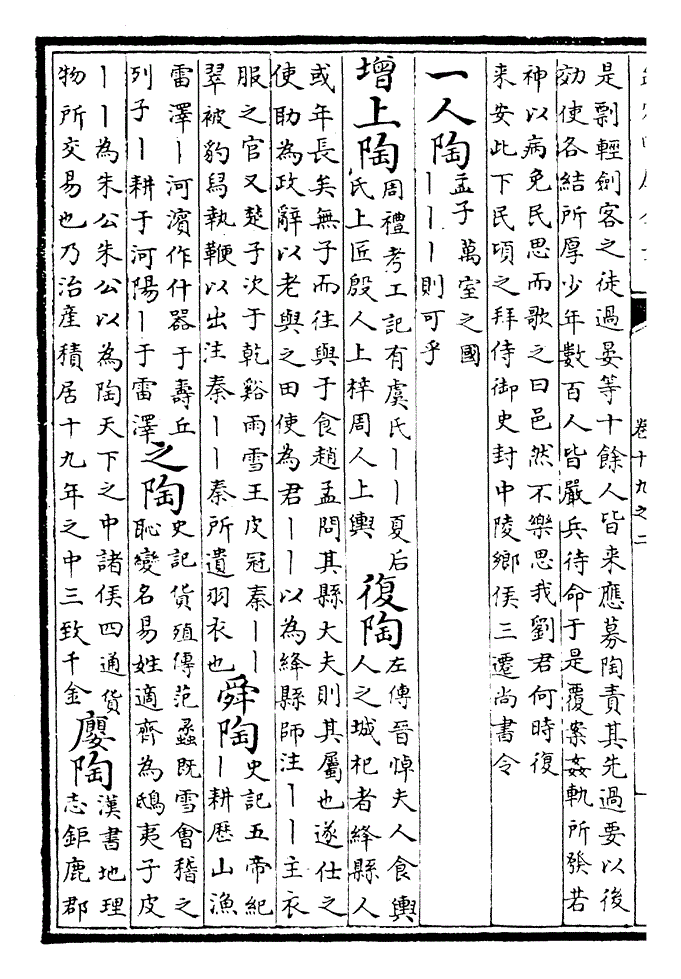 卷十九之二
是剽輕劍客之徒過晏等十餘人皆来應募陶責其先過要以後
効使各結所厚少年數百人皆嚴兵待命于是覆案姦軌所發若
神以病免民思而歌之曰邑然不樂思我劉君何時復
来安此下民頃之拜侍御史封中陵鄉侯三遷尚書令
一人陶
孟子萬室之國
丨丨丨則可乎
增上陶
周禮考工記有虞氏丨丨夏后
氏上匠殷人上梓周人上輿
復陶
左傳晉悼夫人食輿
人之城杞者絳縣人
或年長矣無子而往與于食趙孟問其縣大夫則其屬也遂仕之
使助為政辭以老與之田使為君丨丨以為絳縣師注丨丨主衣
服之官又楚子次于乾谿雨雪王皮冠秦丨丨
翠被豹舄執鞭以出注秦丨丨秦所遺羽衣也
舜陶
史記五帝紀
丨耕歷山漁
雷澤丨河濱作什器于壽丘
列子丨耕于河陽丨于雷澤
之陶
史記貨殖傳范蠡既雪會稽之
恥變名易姓適齊為鴟夷子皮
丨丨為朱公朱公以為陶天下之中諸侯四通貨
物所交易也乃治産積居十九年之中三致千金
廮陶
漢書地理
志鉅鹿郡